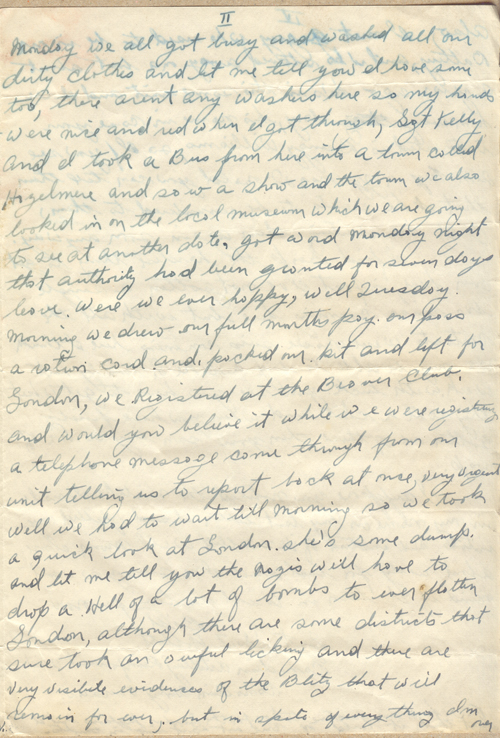 II
Monday we all got busy and washed all our
dirty clothes and let me tell you I'd have some
too, there arent any washers here so my hands
were nice and red when I got through, Sgt Kelly
and I took a Bus from here into a town called
Hazelmere and saw a show and the town we also
looked in on the local museum which we are going
to see at another date. got word Monday night
that authority had been granted for seven days
leave. Were we ever happy, well Tuesday.
morning we drew our full months pay. our pass
a ration card and. packed our kit and left for
London, we Registered at the Beaver Club.
and would you believe it while we were registering
a telephone message come through from our
unit telling us to report back at once, very urgent
well we had to wait till morning so we took
a quick look at London. she's some dump.
and let me tell you the Nazis will have to
drop a Hell of a lot of bombs to ever flatten
London, although there are some districts that
sure took an awful licking and there are
very visible evidences of the Blitz that will
remain for ever, but in spite of everything I'm
over